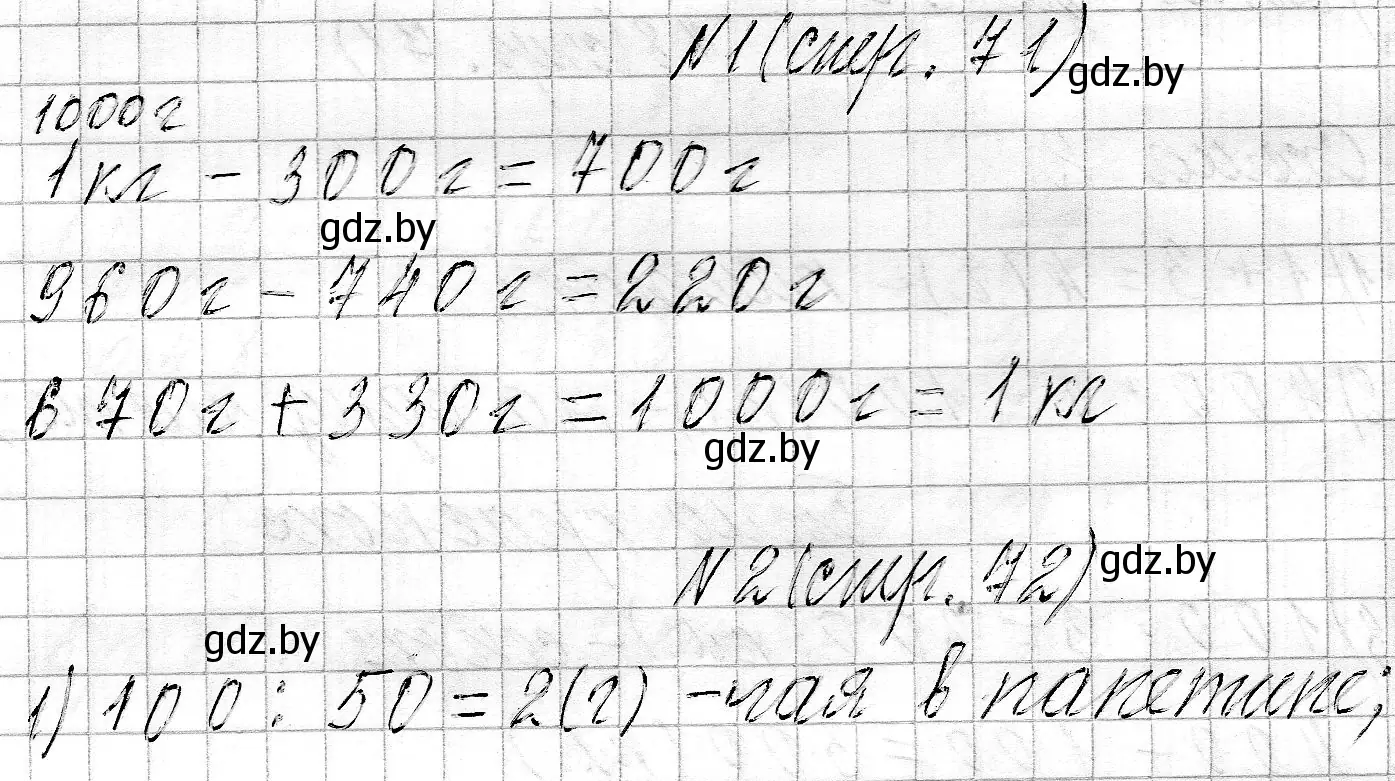 №1 (стр. 71) gdz.by
1000г
1 кг - 300г = 700г
gdz.by
960г - 740г = 220г
670г + 330г = 1000г = 1 кг
gdz.by
№2 (стр. 72) gdz.by
gdz.by
1) 100 : 50 = 2 (г) - чая в пакетике;